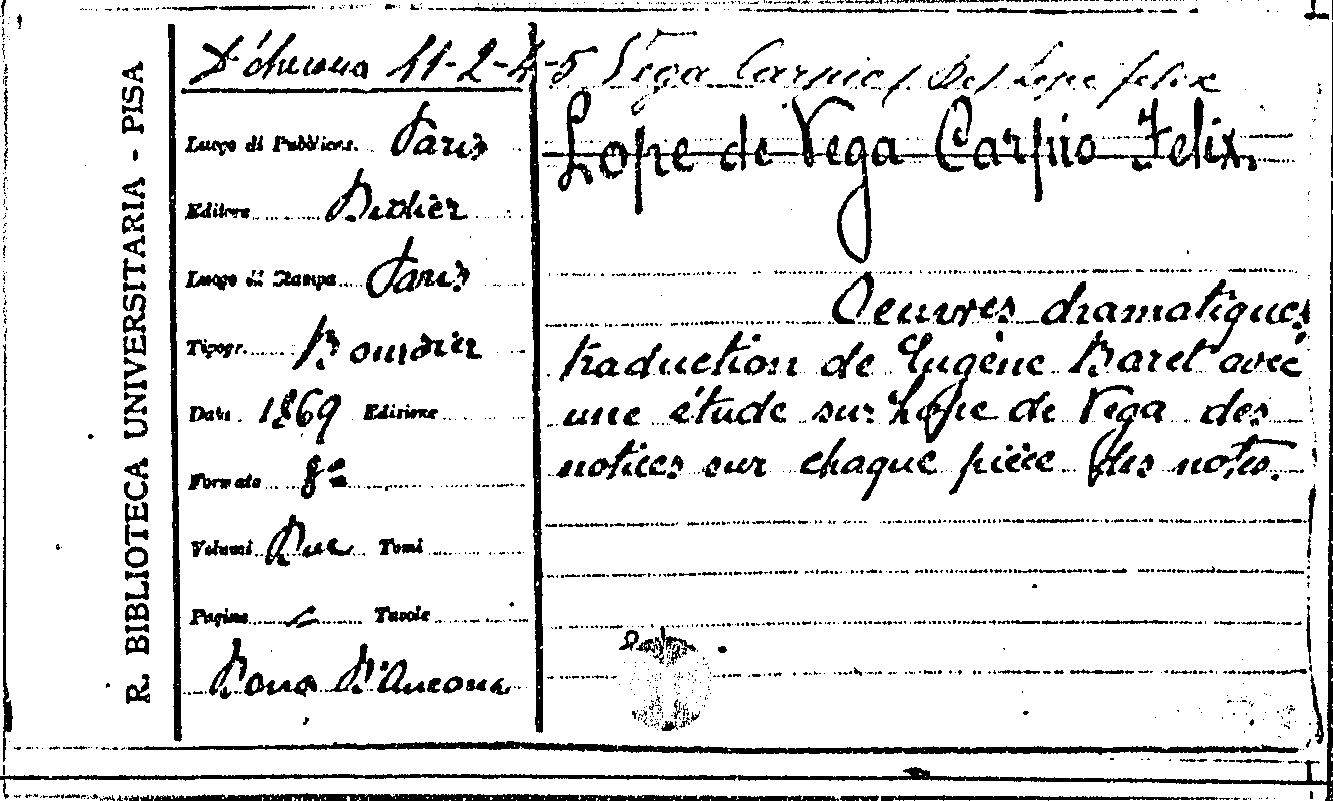 R. BIBLIOTECA UNIVERSITARIA - PISA
D'Ancona 11-2-4-5
Luogo di Pubblicaz. Paris
Editore Didier
Luogo di Stampa Paris
Tipogr. Bourdier
Data 1869 Edizione
Formato 8º
Volumi Due Tomi
Pagine Tavole
Dono D'Ancona
Vega Carpio (De) Lope felix
Lope de Vega Carpio Felix.
Oeuvres dramatiques
traduction de Eugène Baret avec
une étude sur Lope de Vega des
notices sur chaque pièce des notes.